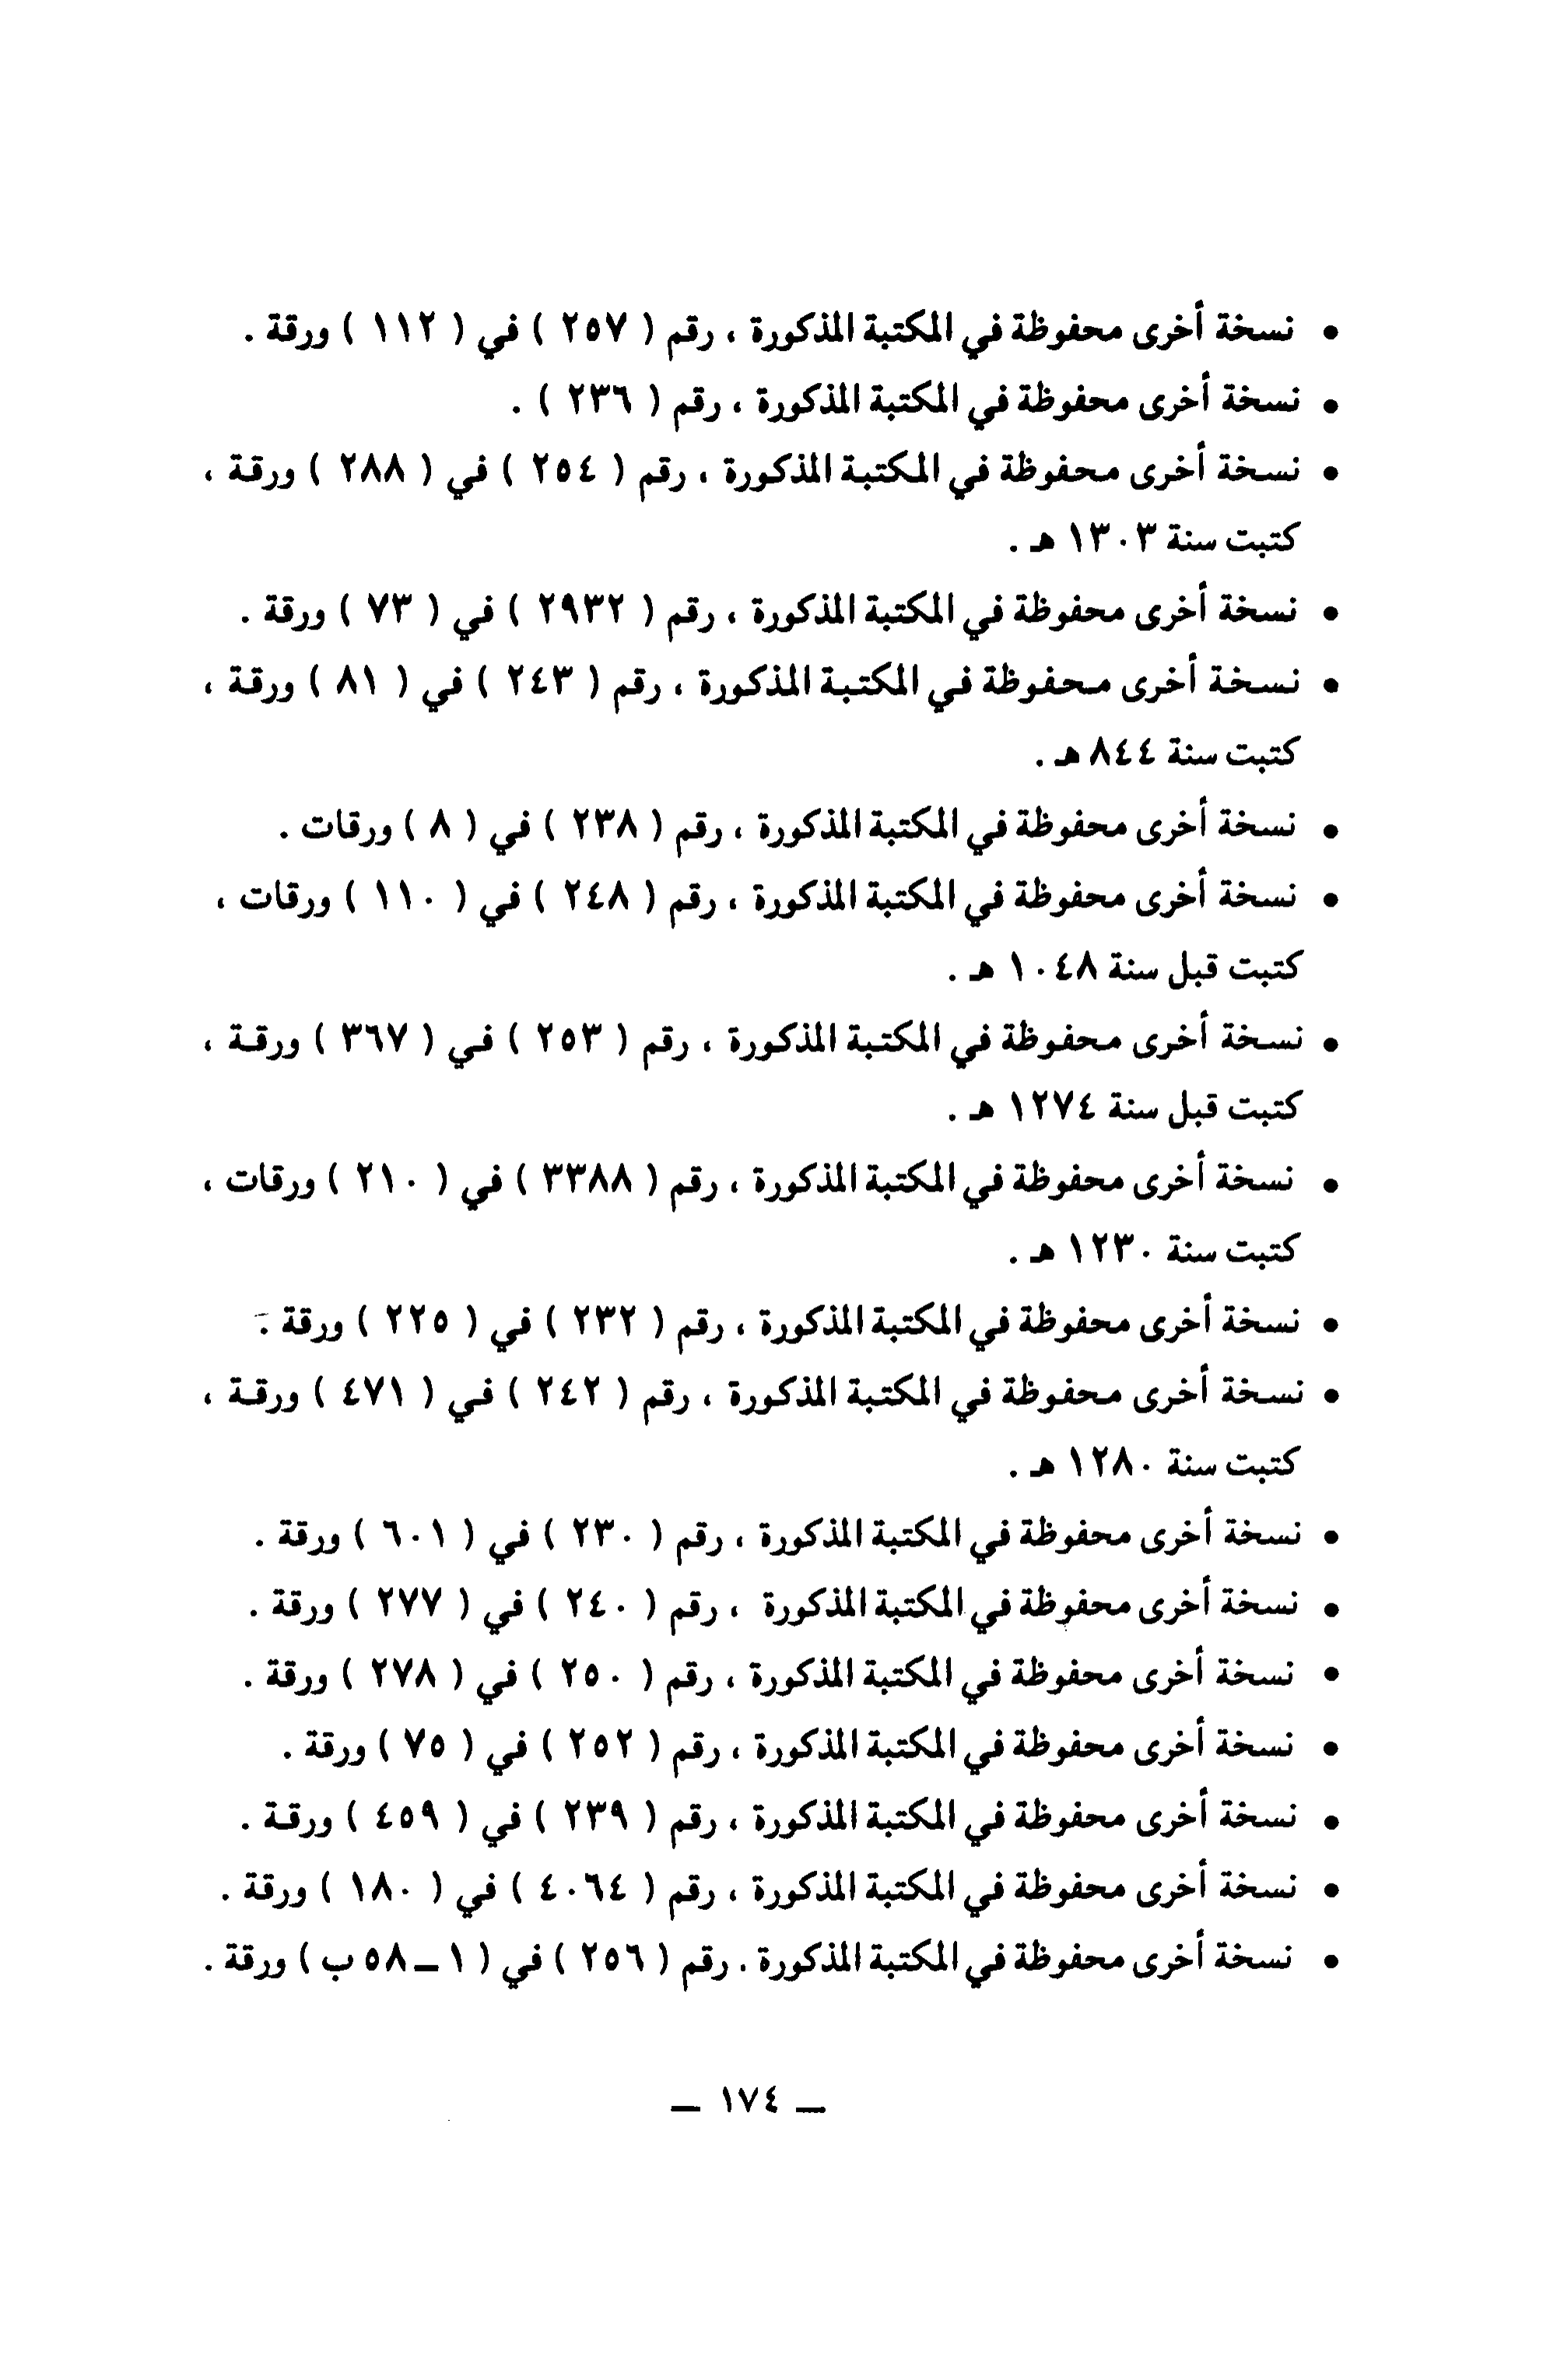 • نسخة أخرى محفوظة في المكتبة المذكورة ، رقم ( ٢٥٧ ) في ( ١١٢ ) ورقة .
• نسخة أخرى محفوظة في المكتبة المذكورة ، رقم ( ٢٣٦ ) .
• نسخة أخرى محفوظة في المكتبة المذكورة ، رقم ( ٢٥٤ ) في ( ٢٨٨ ) ورقة ،
كتبت سنة ١٣٠٣ هـ .
• نسخة أخرى محفوظة في المكتبة المذكورة ، رقم ( ٢٩٣٢ ) في ( ٧٣ ) ورقة .
• نسخة أخرى محفوظة في المكتبة المذكورة ، رقم ( ٢٤٣ ) في ( ٨١ ) ورقة ،
كتبت سنة ٨٤٤ هـ .
• نسخة أخرى محفوظة في المكتبة المذكورة ، رقم ( ٢٣٨ ) في ( ٨ ) ورقات .
• نسخة أخرى محفوظة في المكتبة المذكورة ، رقم ( ٢٤٨ ) في ( ١١٠ ) ورقات ،
كتبت قبل سنة ١٠٤٨ هـ .
• نسخة أخرى محفوظة في المكتبة المذكورة ، رقم ( ٢٥٣ ) في ( ٣٦٧ ) ورقة ،
كتبت قبل سنة ١٢٧٤ هـ .
• نسخة أخرى محفوظة في المكتبة المذكورة ، رقم ( ٣٣٨٨ ) في ( ٢١٠ ) ورقات ،
كتبت سنة ١٢٣٠ هـ .
• نسخة أخرى محفوظة في المكتبة المذكورة ، رقم ( ٢٣٢ ) في ( ٢٢٥ ) ورقة .
• نسخة أخرى محفوظة في المكتبة المذكورة ، رقم ( ٢٤٢ ) في ( ٤٧١ ) ورقة ،
كتبت سنة ١٢٨٠ هـ .
• نسخة أخرى محفوظة في المكتبة المذكورة ، رقم ( ٢٣٠ ) في ( ٦٠١ ) ورقة .
• نسخة أخرى محفوظة في المكتبة المذكورة ، رقم ( ٢٤٠ ) في ( ٢٧٧ ) ورقة .
• نسخة أخرى محفوظة في المكتبة المذكورة ، رقم ( ٢٥٠ ) في ( ٢٧٨ ) ورقة .
• نسخة أخرى محفوظة في المكتبة المذكورة ، رقم ( ٢٥٢ ) في ( ٧٥ ) ورقة .
• نسخة أخرى محفوظة في المكتبة المذكورة ، رقم ( ٢٣٩ ) في ( ٤٥٩ ) ورقة .
• نسخة أخرى محفوظة في المكتبة المذكورة ، رقم ( ٤٠٦٤ ) في ( ١٨٠ ) ورقة .
• نسخة أخرى محفوظة في المكتبة المذكورة . رقم ( ٢٥٦ ) في ( ١ – ٥٨ ب ) ورقة .
— ١٧٤ —